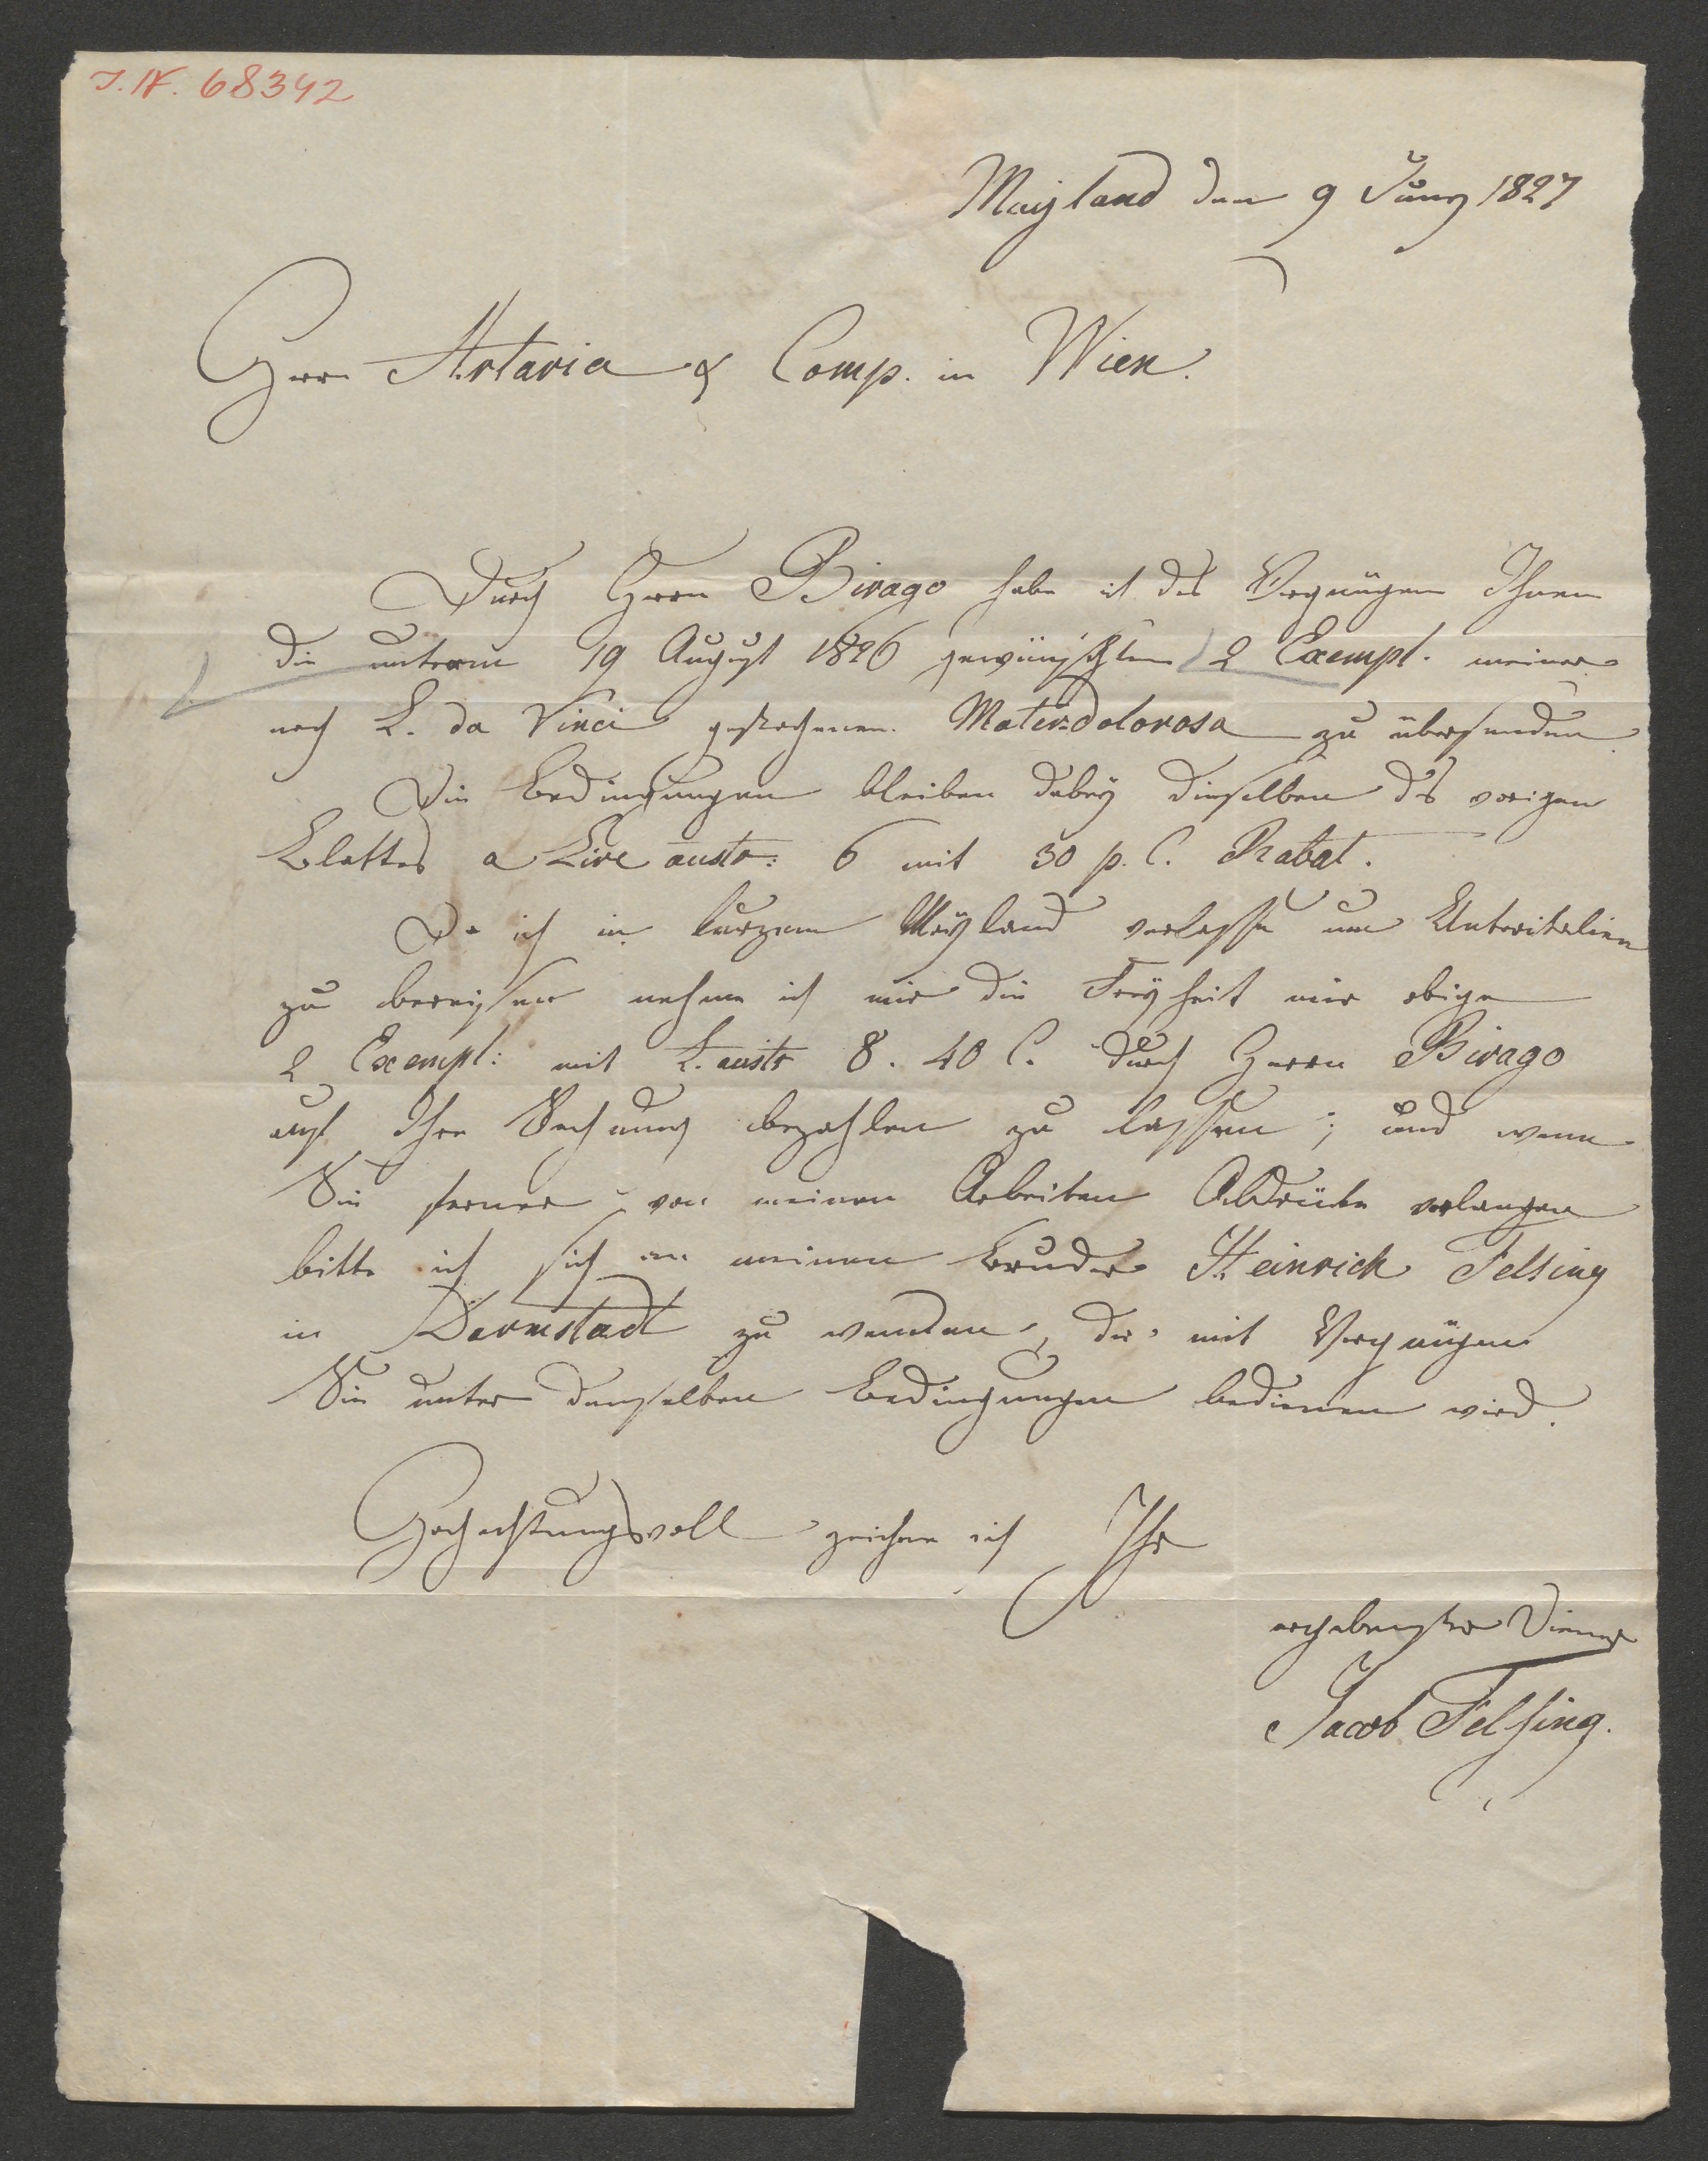 I.N. 68342
Mayland den 9 Juny 1827
Herrn Artaria & Comp. in Wien.
Durch Herrn Birago habe ich das Vergnügen Ihnen
die unterm 19 August 1826 gewünschten 2 Exempl. meiner
nach L. da Vinci gestochenen Mater=dolorosa zu übersenden
Die Bedingungen bleiben dabey dieselben des vorigen
Blattes a Lire austr: 6 mit 30 p. C. Rabat.
Da ich in kurzem Mayland verlasse um Unteritalien
zu bereisen nehme ich mir die Freyheit mir obige
2 Exempl: mit L. austr 8. 40 C. durch Herrn Birago
auf Ihre Rechnung bezahlen zu lassen; und wenn
Sie ferner von meinen Arbeiten Abdrücke verlangen
bitte ich sich an meinen Bruder Heinrich Felsing
in Darmstadt zu wenden, der mit Vergnügen
Sie unter denselben Bedingungen bedienen wird.
Hochachtungsvoll zeichne ich Ihr
ergebenster Diener
Jacob Felsing.